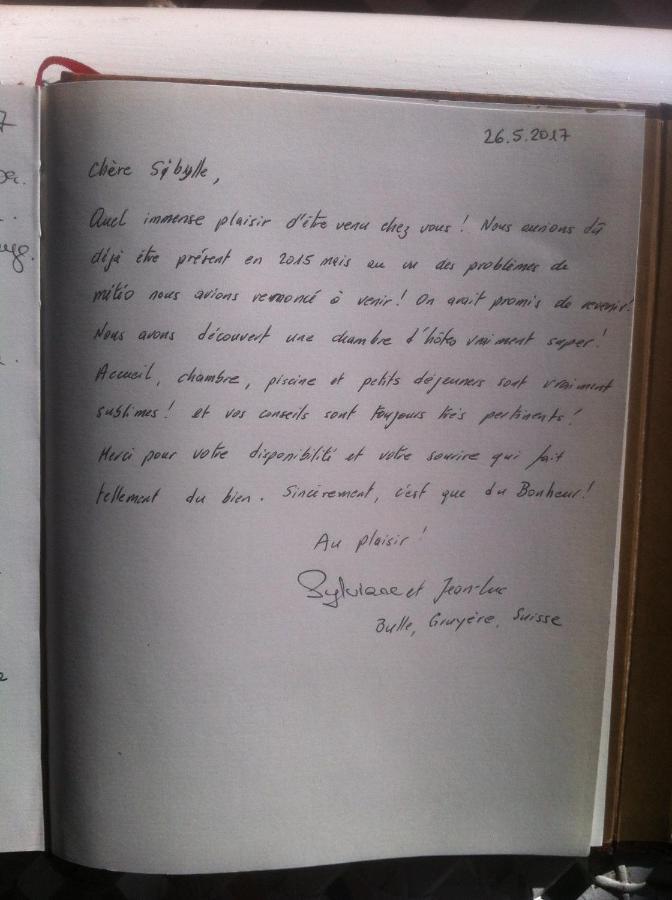 26.5.2017
Chère Sybylle,
Quel immense plaisir d'être venu chez vous ! Nous aurions dû
déjà être présent en 2015 mais au vu des problèmes de
météo nous avions renoncé à venir ! On avait promis de revenir!
Nous avons découvert une chambre d'hôtes vraiment super !
Accueil, chambre, piscine et petits déjeuners sont vraiment
sublimes ! et vos conseils sont toujours très pertinents !
Merci pour votre disponiblité et votre sourire qui fait
tellement du bien. Sincèrement, c'est que du Bonheur !
Au plaisir !
Sylviane et Jean-Luc
Bulle, Gruyère, Suisse